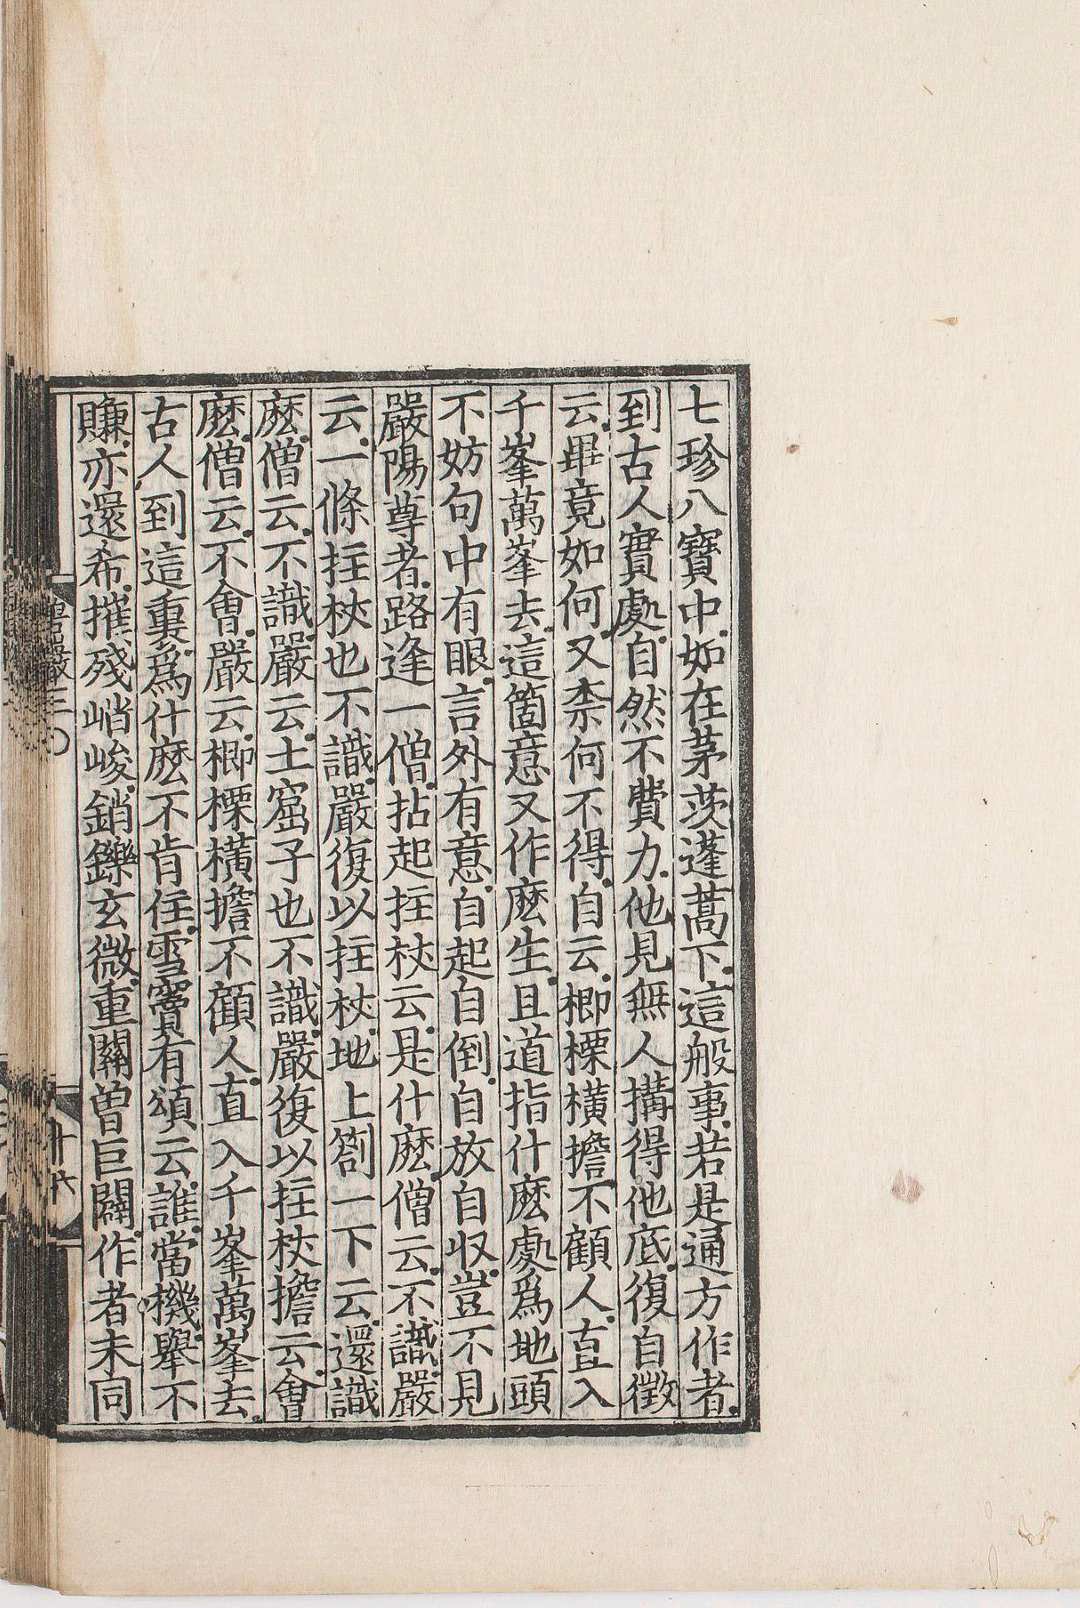 七珍八寶中如在茅茨蓬蒿下這般事若是通方作者
到古人實處自然不費力他見無人搆得他底復自徵
云畢竟如何又柰何不得自云楖栗橫擔不顧人直入
千峯萬峯去這箇意又作麽生且道指什麽處爲地頭
不妨句中有眼言外有意自起自倒自放自収豈不見
嚴陽尊者路逢一僧拈起拄杖云是什麽僧云不識嚴
云一條拄杖也不識嚴復以拄杖地上劄一下云還識
麽僧云不識嚴云土窟子也不識嚴復以拄杖擔云會
麽僧云不會嚴云楖栗橫擔不顧人直入千峯萬峯去
古人到這裏爲什麽不肯住雪竇有頌云誰當機舉不
賺亦還希摧殘峭峻銷鑠玄微重關曽巨闢作者未同
碧巖三
十六